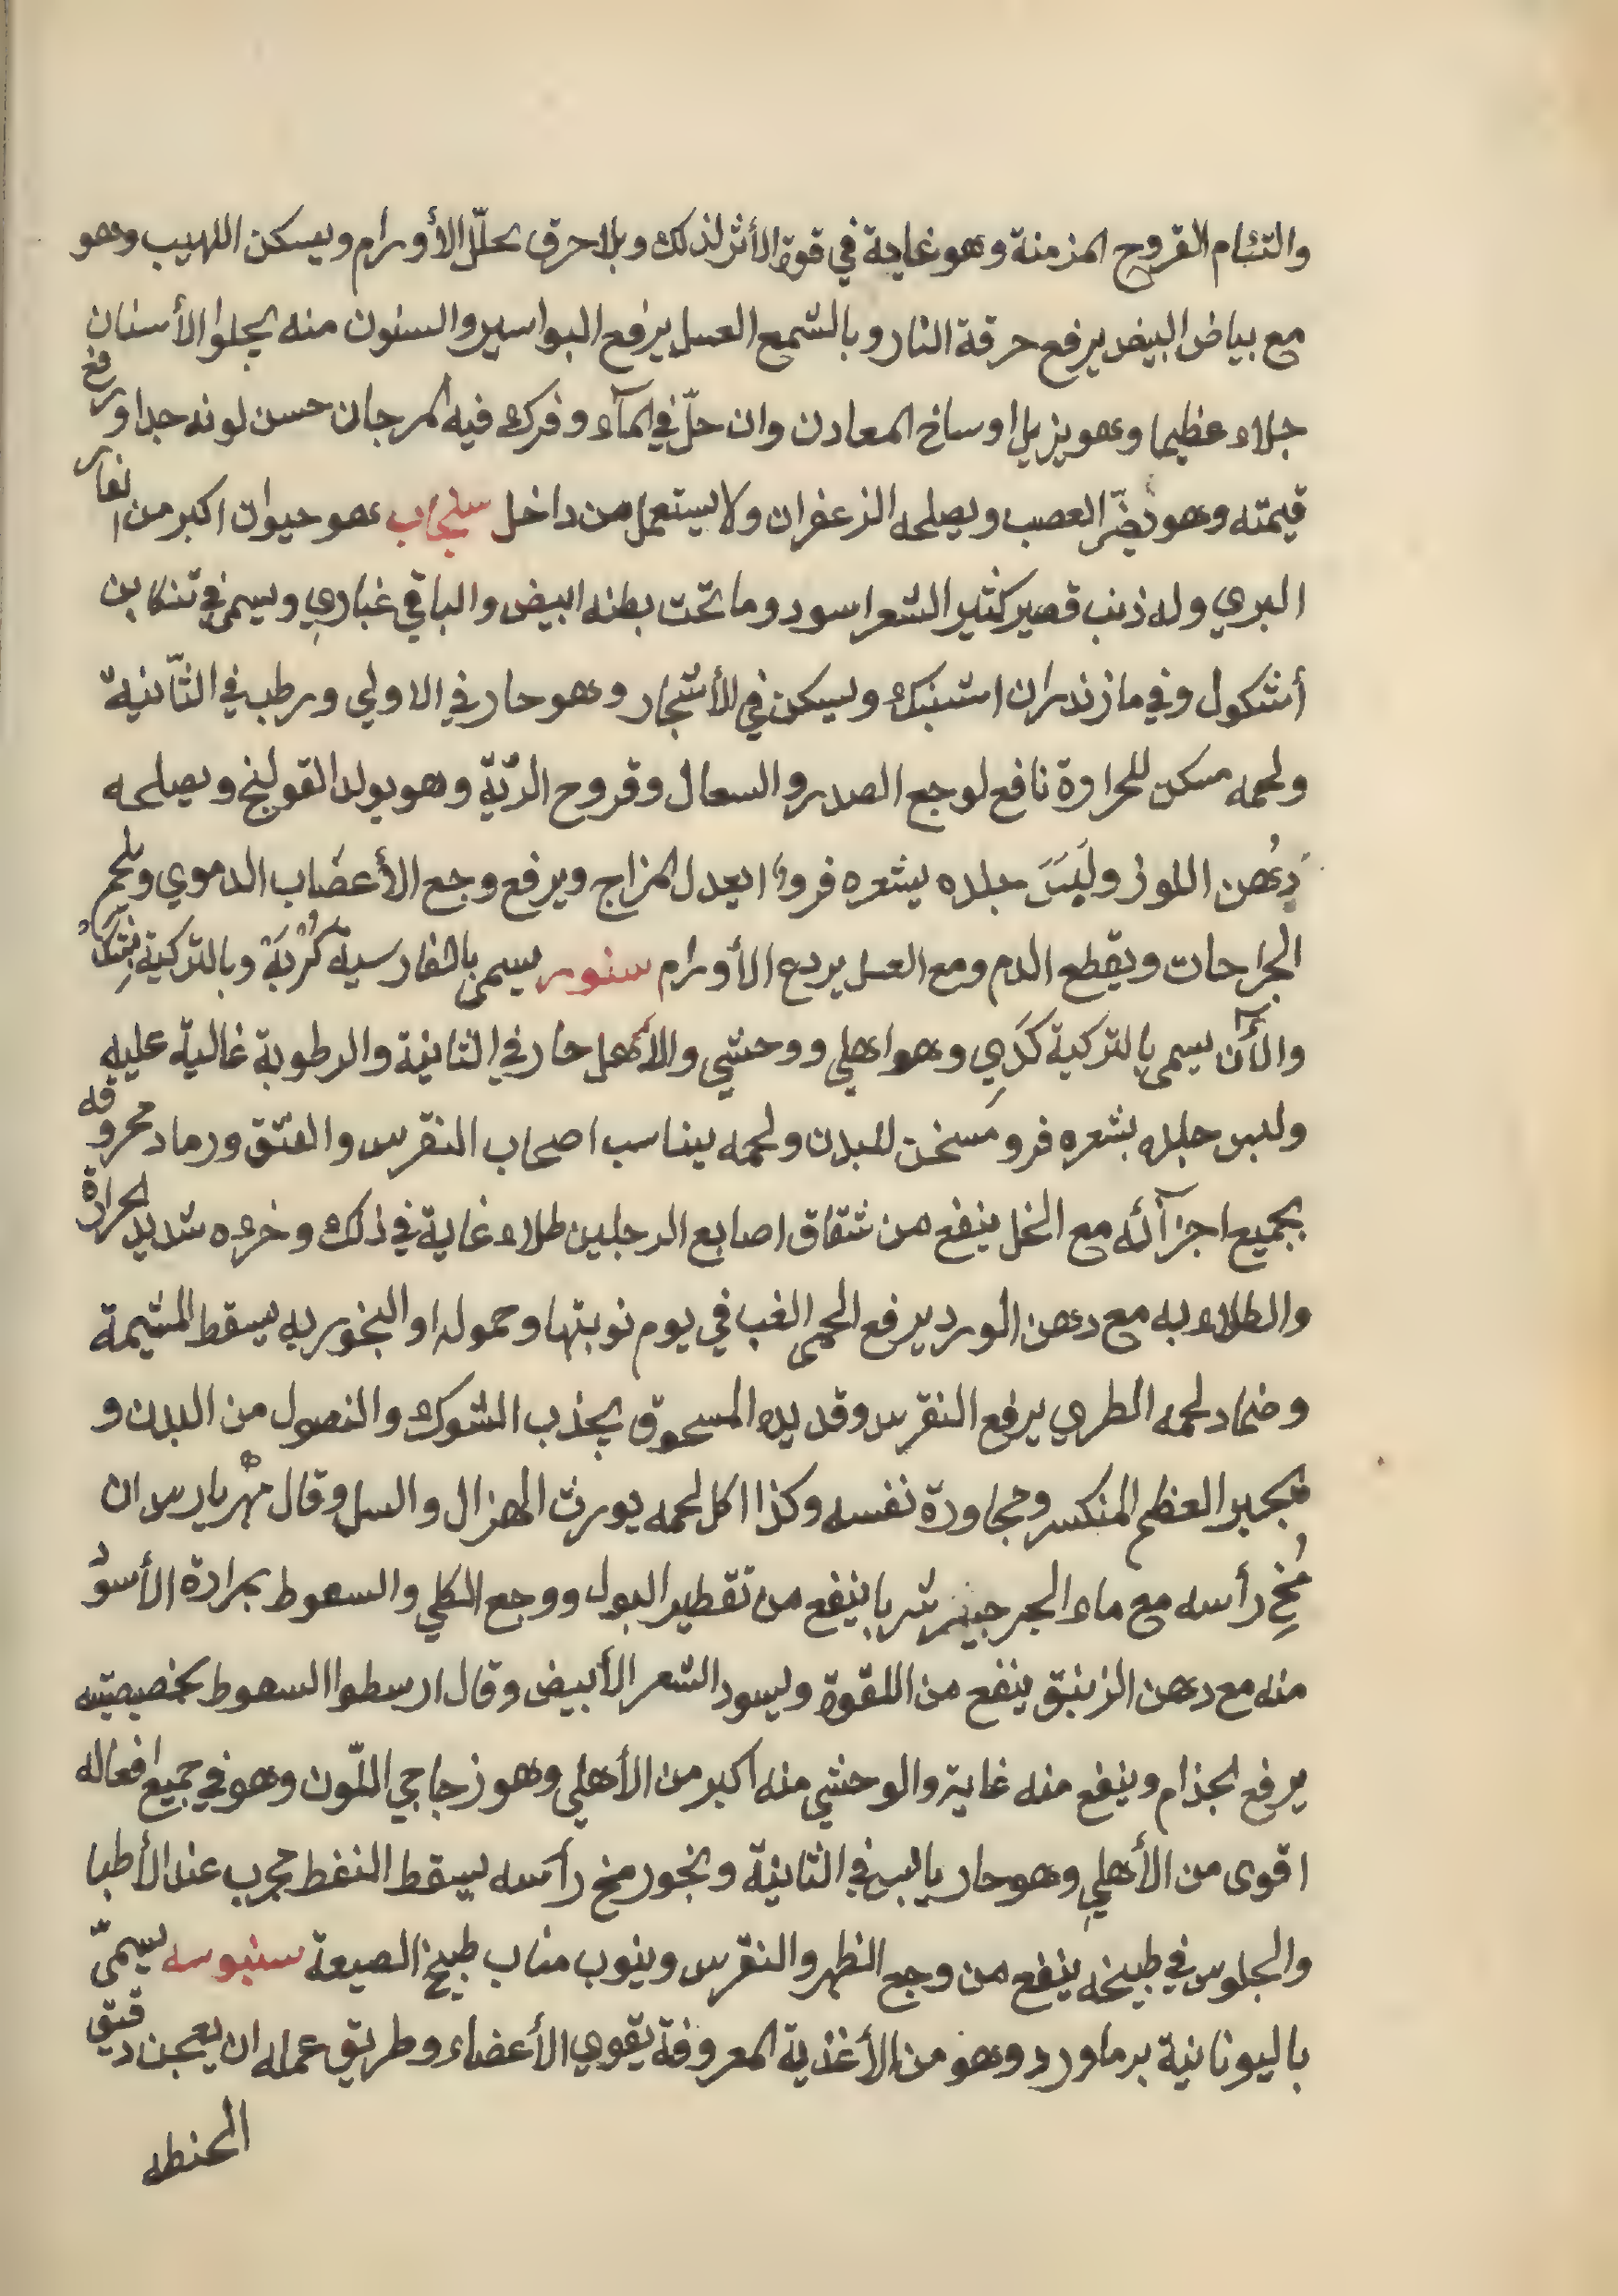 والتئام القروح المزمنة وهو غاية في قوة الأثر لذلك وبلا حرق يحلّل الأورام ويسكن اللهيب وهو
مع بياض البيض يرفع حرقة النار وبالشمع العسل يرفع البواسير والسنون منه يجلوا الأسنان
جلاء عظيما وهو يزيل اوساخ المعادن وان حلّ في المآء وفرك فيه المرجان حسن لونه جدا ورفع
قيمته وهو يضّر العصب ويصلحه الزعفران ولا يستعمل من داخل سنجاب هو حيوان اكبر من الفار
البري وله ذنب قصير كثير الشعر اسود وما تحت بطنه ابيض والباقي غباري ويسمى في تنكابن
أشكول وفي مازندران اشبنك ويسكن في الأشجار وهو حار في الاولي ورطب في الثّانية
ولحمه مسكن للحراوة نافع لوجع الصدر والسعال وقروح الرّية وهو يولد القولنج ويصلحه
دُهن اللوز ولَبسَ جلده بشعره فروا يعدل المزاج ويرفع وجع الأعضاب الدموي ويلحم
الجراحات ويقطع الدم ومع العسل يردع الأورام سنور يسمى بالفارسية كُرْبَة وبالتركية پشِكْ
والأٓن يسمى بالتركية كَدِي وهو اهلي ووحشي والأهل حار في الثانية والرطوبة غالية عليه
ولبس جلده بشعره فرو مسخن للبدن ولحمه يناسب اصحاب النقرس والفتق ورماد محروقه
بجميع اجزآئه مع الخل ينفع من شقاق اصابع الرجلين طلاء غاية في ذلك وخرءه شديد الحرارة
والطلاء به مع دهن الورد يرفع الحمى الغب في يوم نوبتها وحموله او البخور به يسقط المشيمة
وضماد لحمه الطري يرفع النقرس وقديده المسحوق يجذب الشوك والنصول من البدن و
يجبر العظم المنكسر ومجاورة نفسه وكذا اكل لحمه يورث الهزال والسل وقال مهْريارس ان
مُخِ رأسه مع ماء الجرجير شربا ينفع من تقطير البول ووجع الكلي والسعوط بمرارة الأسود
منه مع دهن الزنبق ينفع من اللقوة ويسود الشعر الأبيض وقال ارسطوا السعوط بخصيتيه
يرفع الجذام وينفع منه غاية والوحشي منه اكبر من الأهلي وهو زجاجي اللّون وهو في جميع افعاله
اقوى من الأهلي وهو حار يابس في الثانية وبخور مخ رأسه يسقط النفط مجرب عند الأطبا
والجلوس في طبيخه ينفع من وجع الظهر والنقرس وينوب مناب طبيخ الضبعة سنبوسه يسمىّ
باليونانية برماورد وهو من الأغذية المعروفة يقوي الأعضاء وطريق عمله ان يعجن دقيق
الحنطه